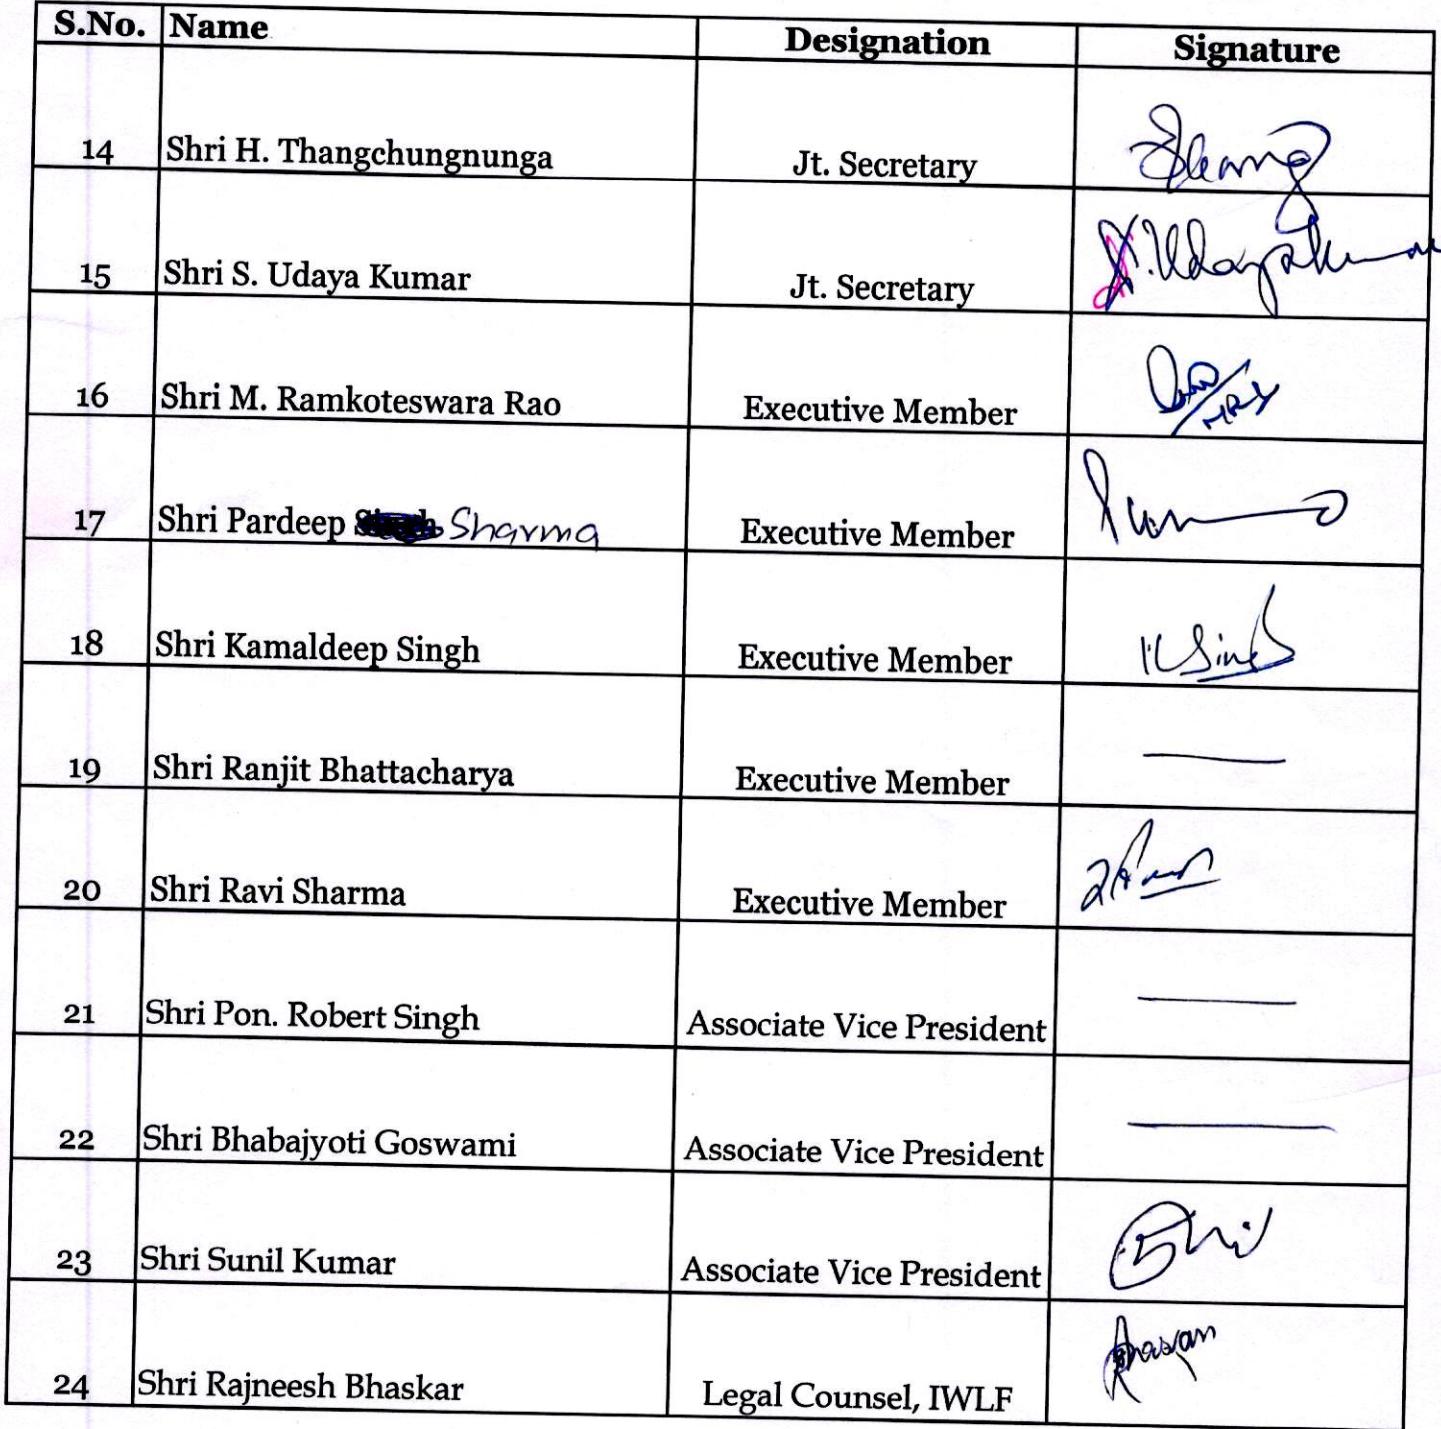 S.No. Name Designation Signature
14 Shri H. Thangchungnunga Jt. Secretary
15 Shri S. Udaya Kumar Jt. Secretary S. Udayakumar
16 Shri M. Ramkoteswara Rao Executive Member
17 Shri Pardeep Sharma Executive Member
18 Shri Kamaldeep Singh Executive Member K Singh
19 Shri Ranjit Bhattacharya Executive Member
20 Shri Ravi Sharma Executive Member
21 Shri Pon. Robert Singh Associate Vice President
22 Shri Bhabajyoti Goswami Associate Vice President
23 Shri Sunil Kumar Associate Vice President
24 Shri Rajneesh Bhaskar Legal Counsel, IWLF